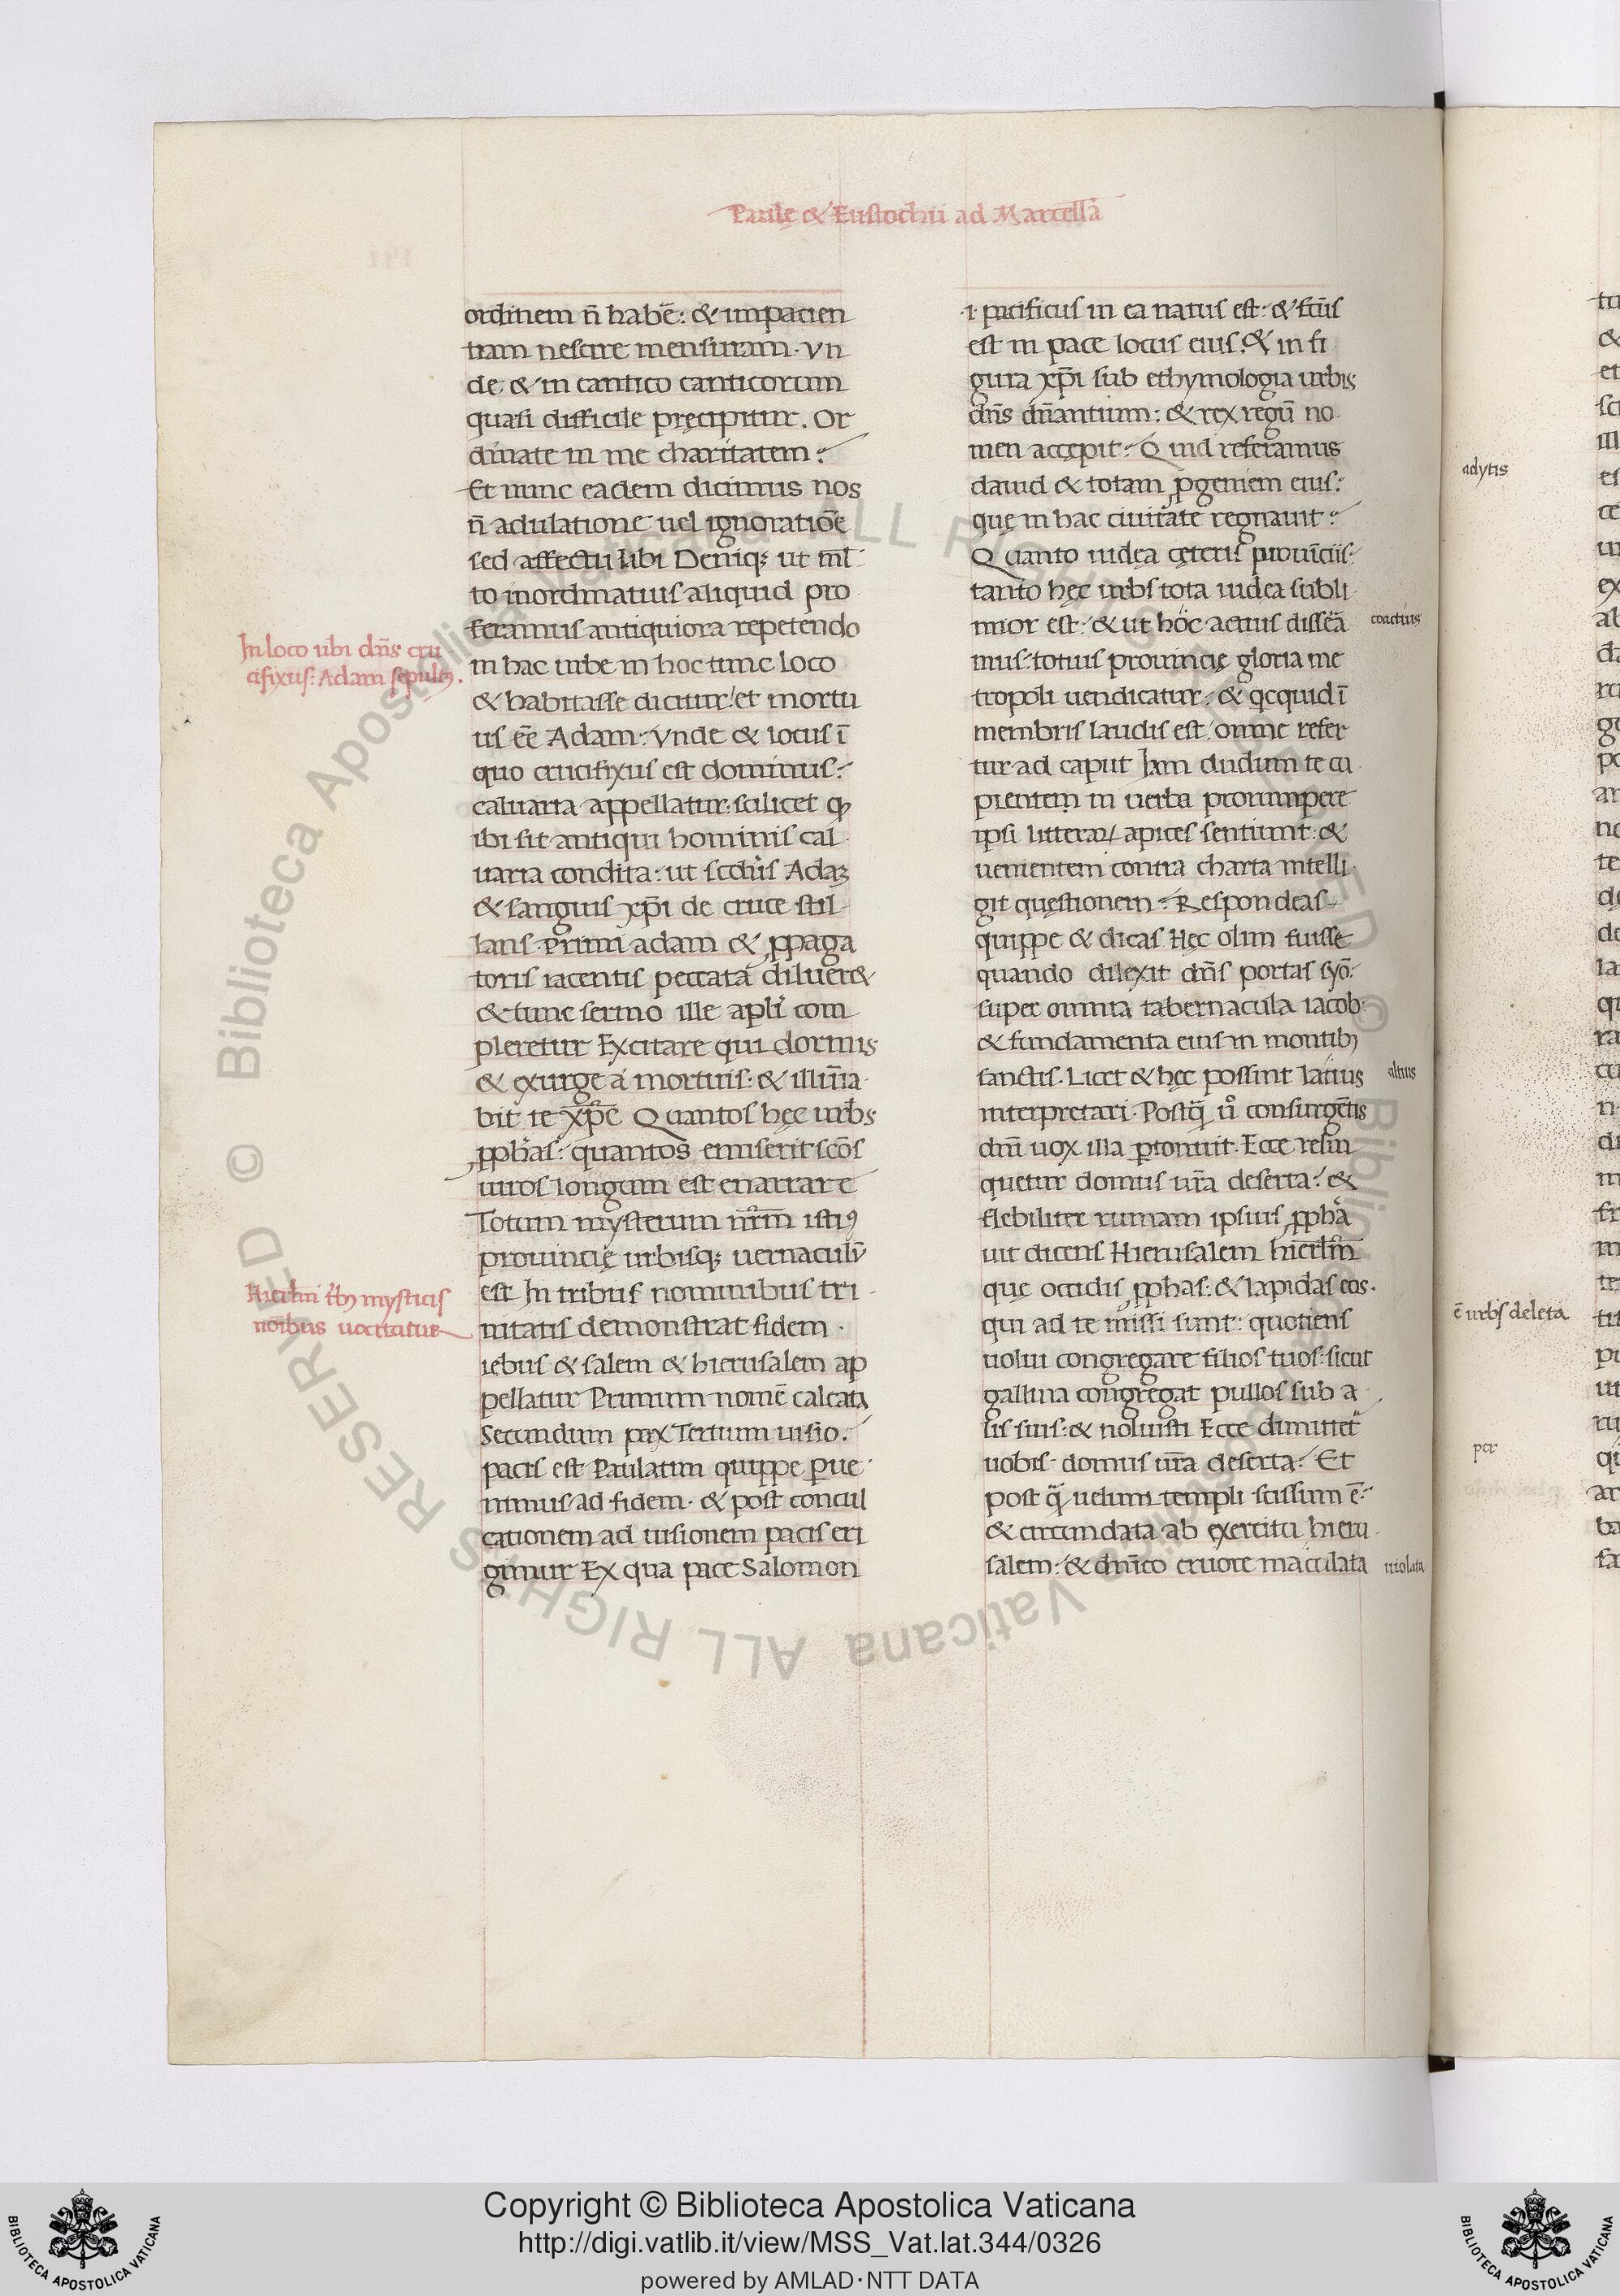 Paulę & Eustochii ad Marcellā
ordinem n̄ habē: & impacien
tiam nescire mensuram. Vn
de & in cantico canticorum
quasi difficile pręcipitur. Or
dinate in me charitatem:
Et nunc eadem dicimus nos
n̄ adulatione uel ignoratiōe
sed affectu tibi Deniq; ut ml̄
to inordinatius aliquid pro
feramus antiquiora repetendo
in hac urbe in hoc tunc loco
& habitasse dicitur: et mortu
us eē Adam: Vnde & locus ī
quo crucifixus est dominus:
caluaria appellatur: scilicet qꝫ
ibi sit antiqui hominis cal
uaria condita: ut scd̄us Adaꝫ
& sanguis xp̄i de cruce stil
lans primi adam & ꝓpaga
toris iacentis peccata diluer&
& tunc sermo ille apl̄i com
pleretur Excitare qui dormis
& exurge a mortuis: & illumīa
bit te xp̄c Quantos hęc urbs
ꝓphās: quantos emiserit scōs
uiros longum est enarrare
Totum mysterium nr̄m istiꝰ
prouincię urbisq; uernaculū
est In tribus nominibus tri
nitatis demonstrat fidem
iebus & salem & hierusalem ap
pellatur Primum nomē calcata
Secundum pax Tertium uisio
pacis est Paulatim quippe ꝑue
nimus ad fidem & post concul
cationem ad uisionem pacis eri
gimur Ex qua pace Salomon
In loco ubi dn̄s cru
cifixus: Adam sepultꝰ.
Hierlm̄ tribꝰ mysticis
nōibus uocitatur
.i. pacificus in ea natus est: & fc̄us
est in pace locus eius. & in fi
gura xp̄i sub ethymologia urbis
dn̄s dn̄antium: & rex regū no
men accepit: Quid referamus
dauid & totam ꝓgeniem eius:
quę in hac ciuitate regnauit:
Quanto iudęa cęteris prouinciis:
tanto hęc urbs tota iudea subli
mior est: & ut hoc actius disserā
mus: totius prouincię gloria me
tropoli uendicatur: & qcquid ī
membris laudis est omne refer
tur ad caput Iam dudum te cu
pientem in uerba prorumpere
ipsi litteraꝝ apices sentiunt: &
uenientem contra charta intelli
git quęstionem: Respondeas
quippe & dicas Hęc olim fuisse
quando dilexit dn̄s portas syō
super omnia tabernacula iacob
& fundamenta eius in montibꝰ
sanctis. Licet & hęc possint latius
interpretari. Postq̄ uo consurgētis
dn̄i uox illa ꝑtonuit. Ecce relin
quetur domus ur̄a deserta: &
flebiliter ruinam ipsius ꝓphā
uit dicens Hierusalem hierlm̄
quę occidis ꝓphas: & lapidas eos.
qui ad te missi sunt: quotiens
uolui congregare filios tuos: sicut
gallina congregat pullos sub a
lis suis: & noluisti Ecce dimittet
uobis domus ur̄a deserta: Et
post q̄ uelum templi scissum ē
& circumdata ab exercitu hieru
salem: & dn̄ico cruore maculata
coactius
altius
uiolata
adytis
ē urbs deleta
per
Copyright © Biblioteca Apostolica Vaticana
http://digi.vatlib.it/view/MSS_Vat.lat.344/0326
powered by AMLAD·NTT DATA
BIBLIOTECA APOSTOLICA VATICANA
BIBLIOTECA APOSTOLICA VATICANA